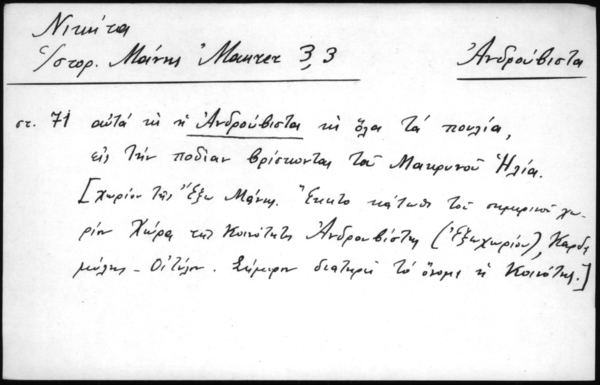 Νικήτα
Ἱστορ. Μάνης 3, 3
Ἀνδρούβιστα
στ. 71 αὐτά κι ἡ Ἀνδρούβιστα κι ὅλα τά πουλία,
εἰς τήν ποδίαν βρίσκονται τοῦ Μακρυνοῦ Ἠλία.
[χωρίον τῆς Ἔξω Μάνης. Ἔκειτο κάτωθι τοῦ σημερινοῦ χω-
ρίου Χώρα τῆς Κοινότητς Ἀνδρουβίστης (Ἐξωχωρίου), Καρδα
μύλης - Οἰτύλου. Σήμερον διατηρεῖ τό ὄνομα ἡ Κοινότης.]